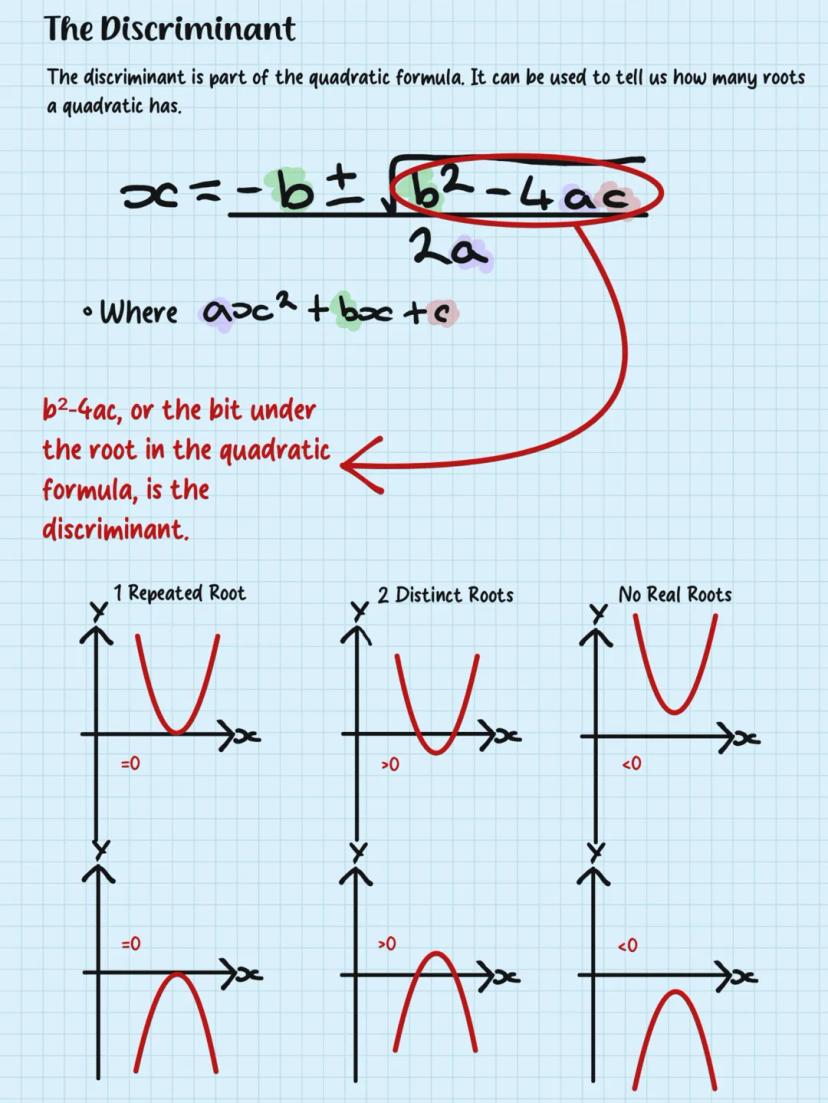 The Discriminant
The discriminant is part of the quadratic formula. It can be used to tell us how many roots
a quadratic has.
x = -b ± √b² - 4ac
2a
• Where ax² + bx + c
b²-4ac, or the bit under
the root in the quadratic
formula, is the
discriminant.
1 Repeated Root 2 Distinct Roots No Real Roots
Y Y Y
x x x
=0 >0 <0
Y Y Y
=0 >0 <0
x x x